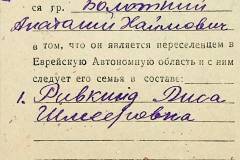 ся гр. Болотний
Анатолий Хаймович
в том, что он является переселенцем в
Еврейскую Автономную область и с ним
следует его семья в составе:
1. Ривкинд Лиса
Шмееровна